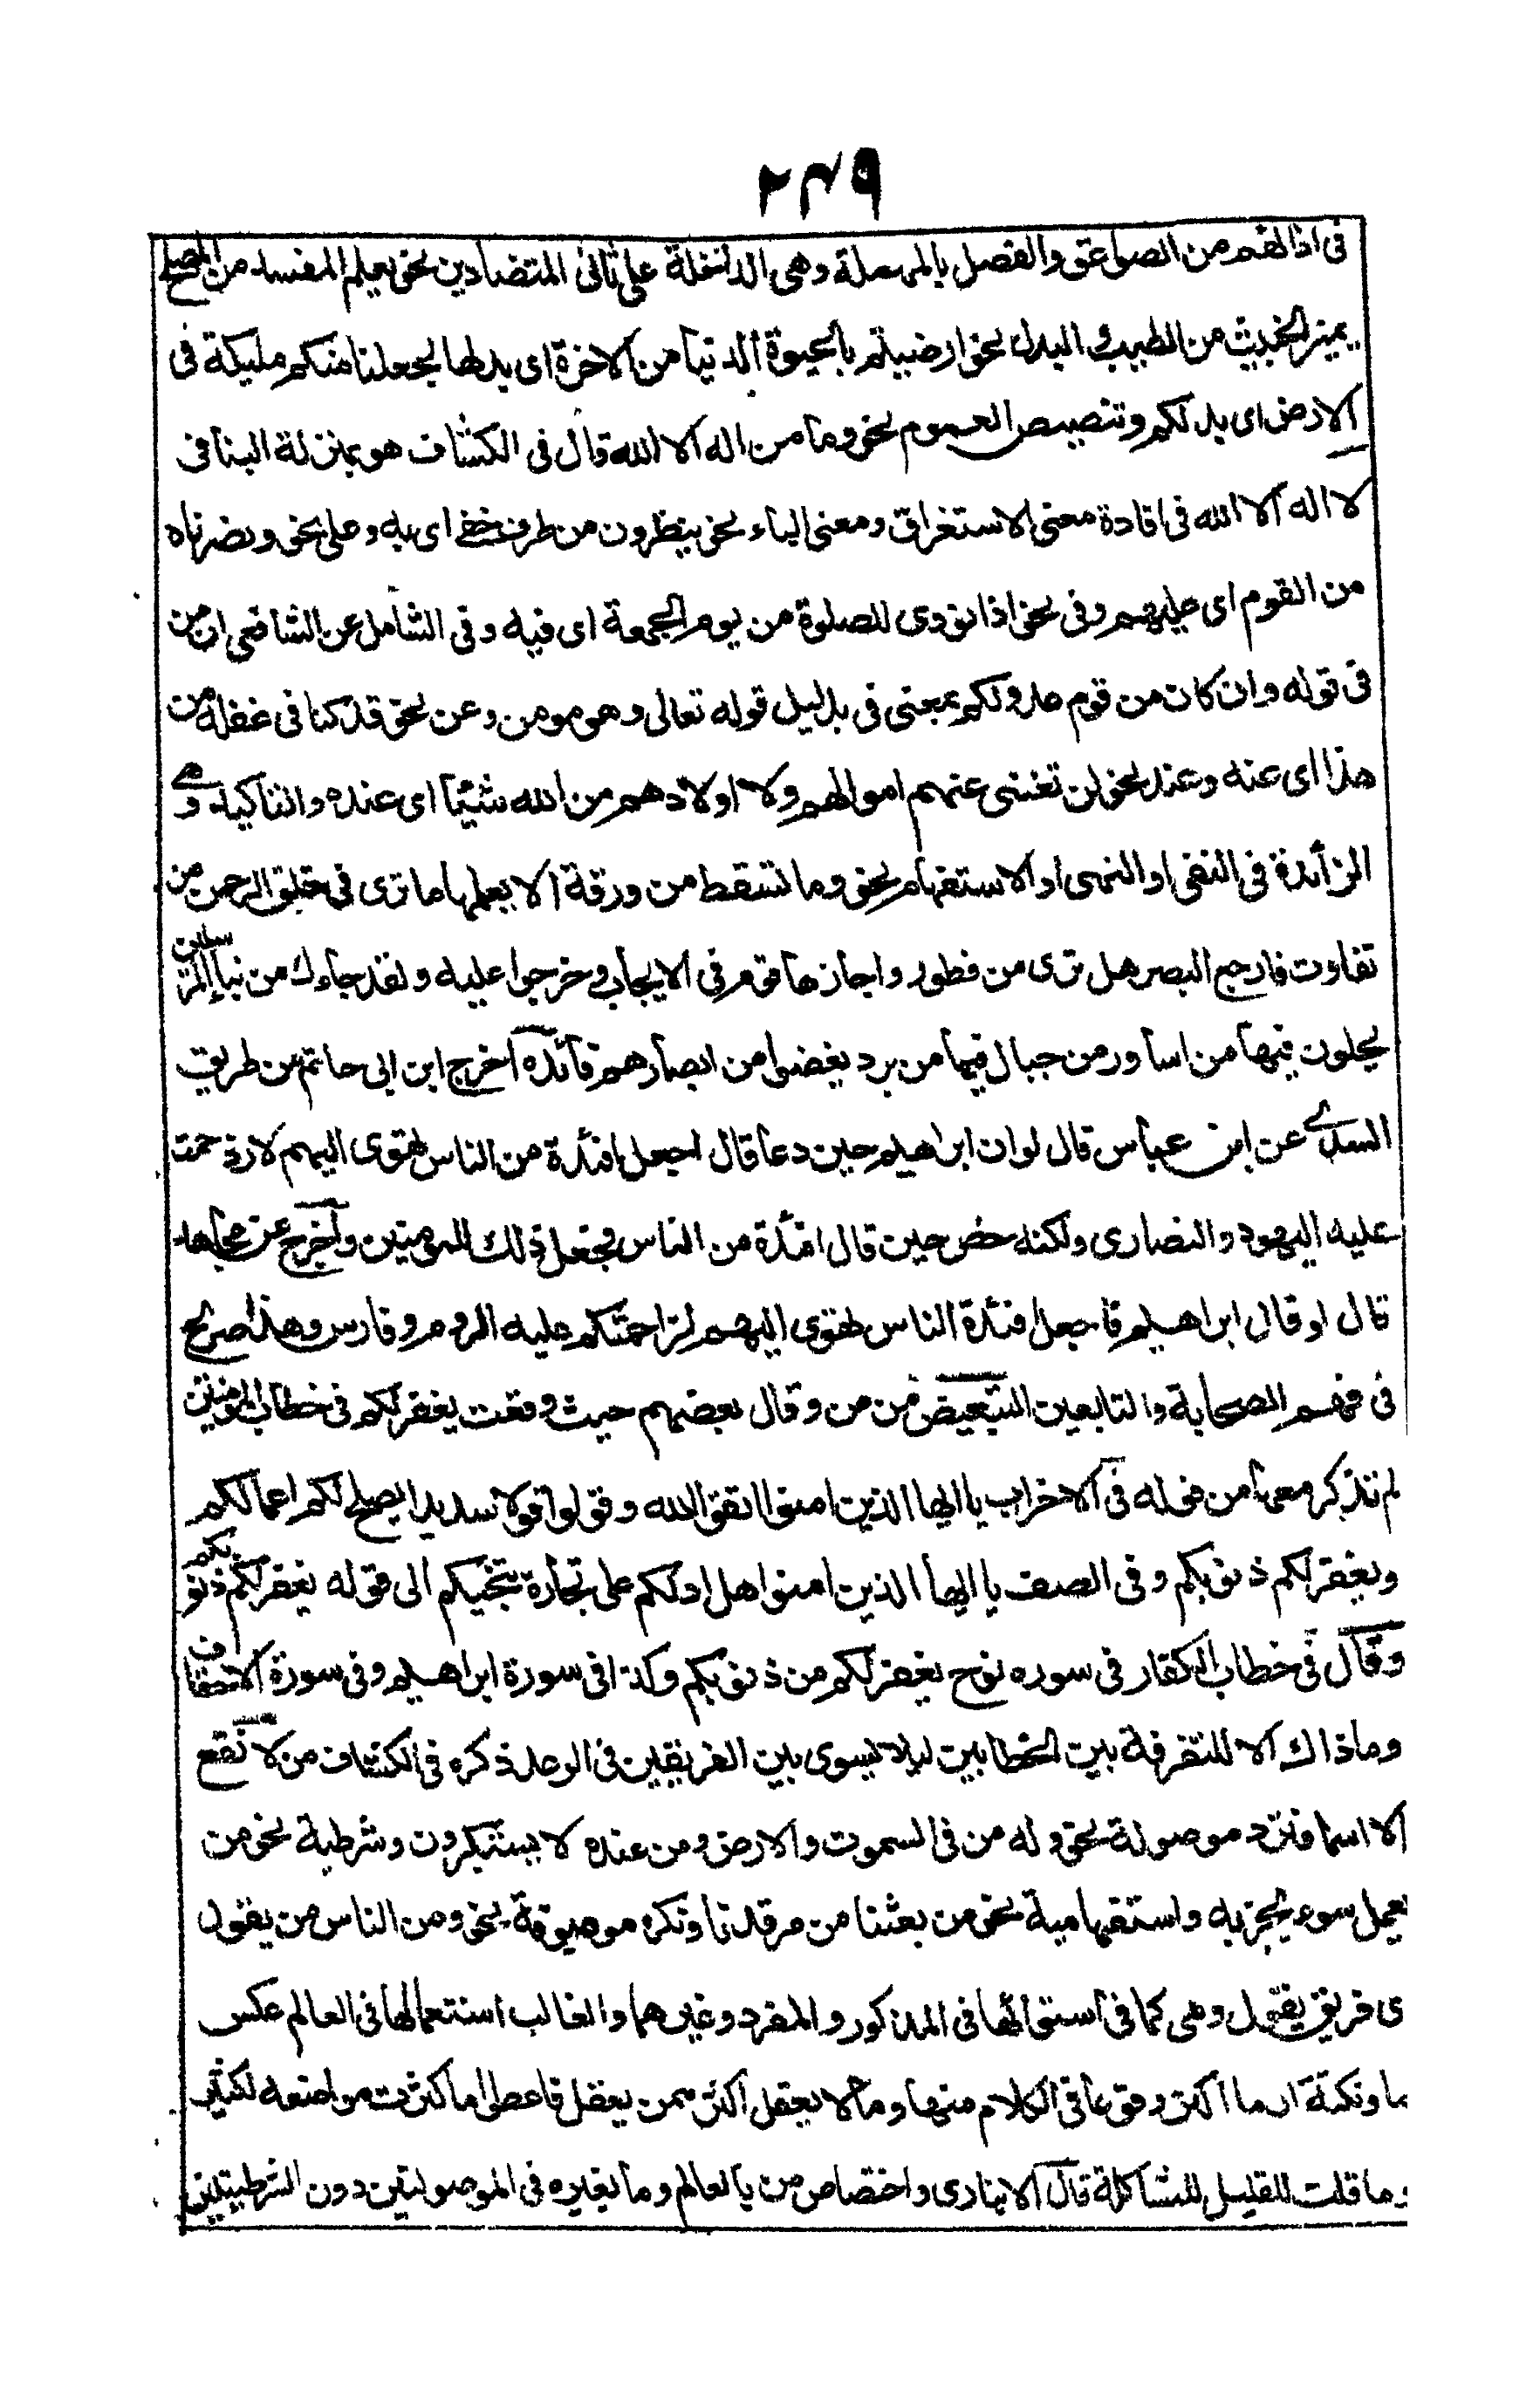 ٢٣٩
فى اذانهم من الصواعق والفصل بالمهملة وهى الداخلة على ثانى المتضادين نحو يعلم المفسد من المصلح
يميز الخبيث من الطيب والبدل نحو ارضيتم بالحيوة الدنيا من الاخرة اى بدلها لجعلنا منكم مليكة فى
الارض اى بدلكم وتنصيص العموم نحو وما من اله الا الله قال فى الكشاف هو بمنزلة البنا فى
لا اله الا الله فى افادة معنى الاستغراق ومعنى الباء نحو ينظرون من طرف خفى اى به وعلى نحو ونصرناه
من القوم اى عليهم وفى نحو اذا نودى للصلوة من يوم الجمعة اى فيه وفى الشامل عن الشافعى ان من
فى قوله وان كان من قوم عدو لكم بمعنى فى بدليل قوله تعالى وهو مومن وعن نحو قد كنا فى غفلة من
هذا اى عنه وعند نحو لن تغنى عنهم اموالهم ولا اولادهم من الله شيئا اى عنده والتاكيد وهے
الزائدة فى النفى او النهى او الاستفهام نحو وما تسقط من ورقة الا يعلمها ما ترى فى خلق الرحمن من
تفاوت فارجع البصر هل ترى من فطور واجازها قوم فى الايجاب وخرجوا عليه ولقد جاءك من نبإ المرسلين
يحلون فيها من اساور من جبال فيها من برد يغضوا من ابصارهم فائدة اخرج ابن ابى حاتم من طريق
السدے عن ابن عباس قال لو ان ابراهيم حين دعا قال اجعل افئدة الناس تهوى اليهم لازدحمت
عليه اليهود والنصارى ولكنه خص حين قال افئدة من الناس فجعل ذلك للمومنين واخرج عن مجاهد
قال لو قال ابراهيم فاجعل افئدة الناس تهوى اليهم لزاحمتكم عليه الروم وفارس وهذا صريح
فى فهم الصحابة والتابعين التبعيض من من وقال بعضهم حيث وقعت يغفر لكم فى خطاب المومنين
لم تذكر معها من قوله فى الاحزاب يا ايها الذين امنوا اتقوا الله وقولوا قولا سديدا يصلح لكم اعمالكم
ويغفر لكم ذنوبكم وفى الصف يا ايها الذين امنوا هل ادلكم على تجارة تنجيكم الى قوله يغفر لكم ذنوبكم
وقال فى خطاب الكفار فى سوره نوح يغفر لكم من ذنوبكم وكذا فى سورة ابراهيم وفى سورة الاحقاف
وماذاك الا للتفرقة بين الخطابين ليلا يسوى بين الفريقين فى الوعد ذكره فى الكشاف من لا تقع
الا اسما فترد موصولة نحو وله من فى السموت والارض ومن عنده لا يستكبرون وشرطية نحو من
يعمل سوء يجز به واستفهامية نحو من بعثنا من مرقدنا ونكره موصوفة نحو ومن الناس من يقول
ى فريق يقول وهى كما فى استوائها فى المذكور والمفرد وغيرهما والغالب استعمالها فى العالم عكس
ما ونكتة ان ما اكثر وقوعا فى الكلام منها وما لا يعقل اكثر ممن يعقل فاعطوا ما كثرت مواضعه لكثير
وما قلت للقليل للمشاكلة قال الانبارى واختصاص من بالعالم وما بغيره فى الموصولتين دون الشرطيتين